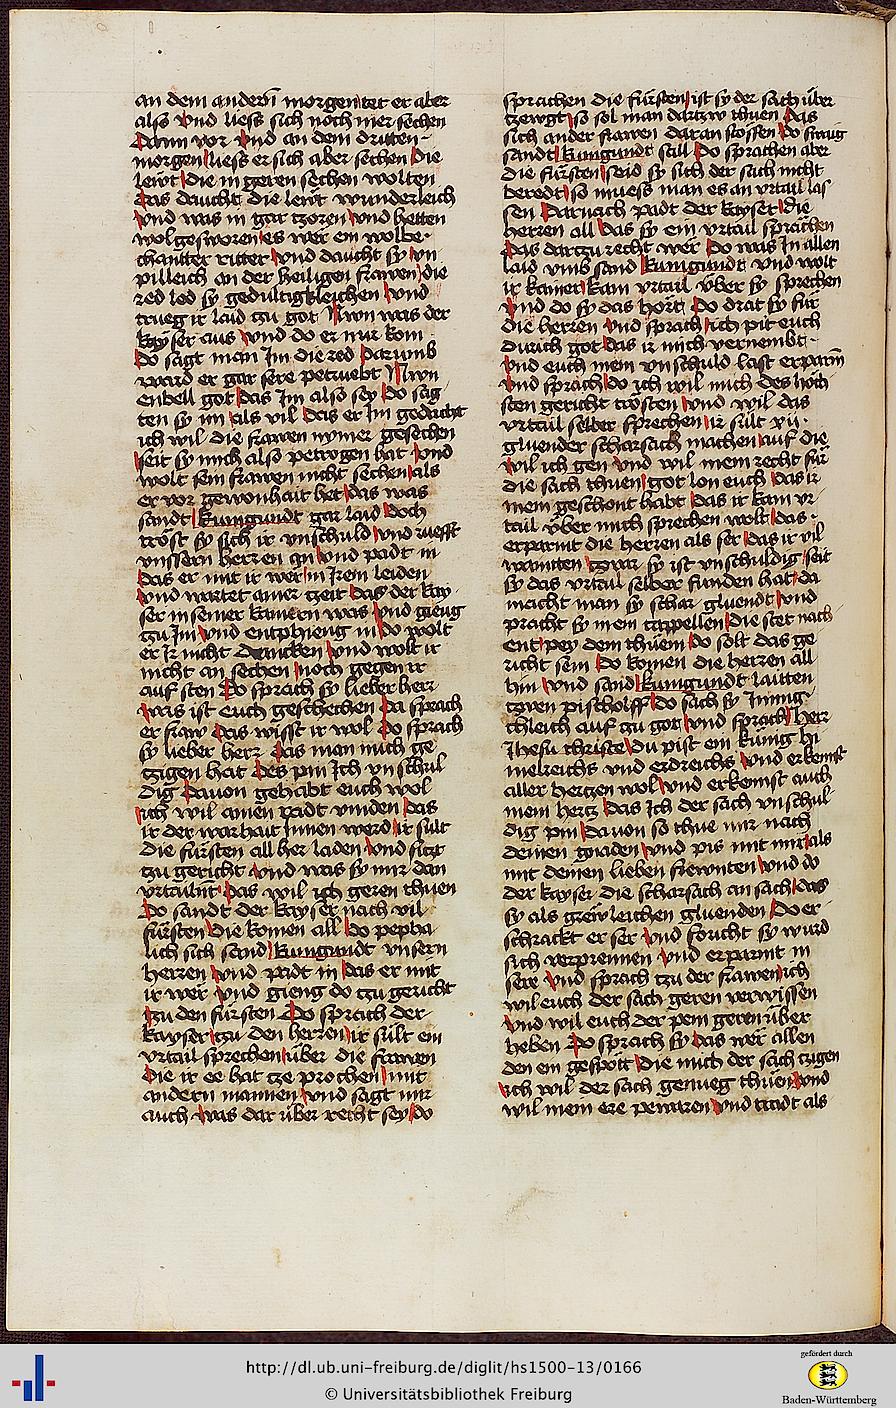 an dem andern morgen tet er aber
also vnd liess sich noch mer sechen
Dann vor vnd an dem dritten
morgen liess er sich aber sechen die
lewt die in geren sechen wolten
das daucht die lewt wunderleich
vnd was in gar tzoren vnd hetten
wol gesworen es wer ein wolbe
chantter ritter vnd daucht sy vn
pilleich an der heiligen frawen die
red led sy gedultigkleichen vnd
trueg ir laid tzu got Nwn was der
kayser aus vnd do er nur kom
do sagt man Im die red Darumb
ward er gar sere petruebt Nwn
enbell got das Im also sey do sag
ten sy im als vil das er Im gedacht
ich wil die frawen nymer gesechen
seit sy mich also petrogen hat vnd
wolt sein frawen nicht sechen als
er vor gewonhait het das was
sandt Kunigundt gar laid doch
trost sy sich ir vnschuld vnd ruefft
vnssern herren an vnd padt in
das er mit ir wer in Irem leiden
vnd wartet ainer tzeit das der kay
ser in seiner kamern was vnd gieng
tzu Im vnd entphieng in do wolt
er Ir nicht dancken vnd wolt ir
nicht an sechen noch gegen ir
auf sten Do sprach sy lieber herr
was ist euch geschechen Da sprach
er fraw das wisst ir wol Do sprach
sy lieber herr das man mich ge
tzigen hat des pin Ich vnschul
dig Dauon gehabt euch wol
ich wil ainen radt vinden das
ir der warhait Innen werd ir sult
die fürsten all her laden vnd sitzt
tzu gericht vnd was sy mir dan
vrtailnt das wil ich geren thuen
Do sandt der kayser nach vil
fürsten die komen all do pepha
lich sich sand Kunigundt vnsern
herren vnd padt in das er mit
ir wer vnd gieng do tzu gericht
tzu den fürsten Do sprach der
kayser tzu den herren ir sult ein
vrtail sprechen über die frawen
die ir ee hat tze prochen mit
andern mannen vnd sagt mir
auch was dar über recht sey do
sprachen die fürsten ist sy der sach über
tzewgt so sol man dartzw thuen das
sich ander frawen daran stossen do swaig
sandt Kunigundt still Do sprachen aber
die fürsten seid sy sich der sach nicht
beredt so muess man es an vrtail las
sen Darnach padt der kayser die
herren all das sy ein vrtail sprächen
das dartzu recht wer Do was In allen
laid vmb sand Kunigundt vnd wolt
ir kainer kain vrtail über sy sprechen
vnd do sy das hort Do drat sy für
die herren vnd sprach ich pit euch
durich got das ir mich vernembt
vnd euch mein vnschuld last erparm
vnd sprach do ich wil mich des höch
sten gericht trösten vnd wil das
vrtail selber sprechen ir sült xii
gluender scharsach machen auf die
wil ich gen vnd wil mein recht für
die sach thuen got lon euch das ir
mein geschont habt das ir kain vr
tail über mich sprechen wolt das
erparmt die herren als ser das ir vil
wainten tzwar sy ist vnschuldig seit
sy das vrtail selber funden hat da
macht man sy schar gluendt vnd
pracht sy in ein cappellen die stet nach
ent pey dem thuem do solt das ge
richt sein Do komen die herren all
hin vnd sand Kunigundt laitten
tzwen pischolff do sach sy Innig
chleich auf tzu got vnd sprach Herr
Jhesu christe du pist ein künig hi
melreichs vnd erdreichs vnd erkenst
aller hertzen wol vnd erkennst auch
mein hertz das Ich der sach vnschul
dig pin dauon so thue mir nach
deinen gnaden vnd pis mit mir als
mit deinen lieben frewnten vnd do
der kayser die scharsach an sach das
sy als gräwleichen gluenden Do er
schrackt er ser vnd foricht sy wurd
sich verprennen vnd erparmt in
sere vnd sprach tzu der frawen ich
wil euch der sach geren verwissen
vnd wil euch der pein geren über
heben Do sprach sy das wer allen
den ein gespött die mich der sach tzigen
ich wil der sach genueg thuen vnd
wil mein ere pewaren vnd tradt als
http://dl.ub.uni-freiburg.de/diglit/hs1500-13/0166
© Universitätsbibliothek Freiburg
gefördert durch
Baden-Württemberg